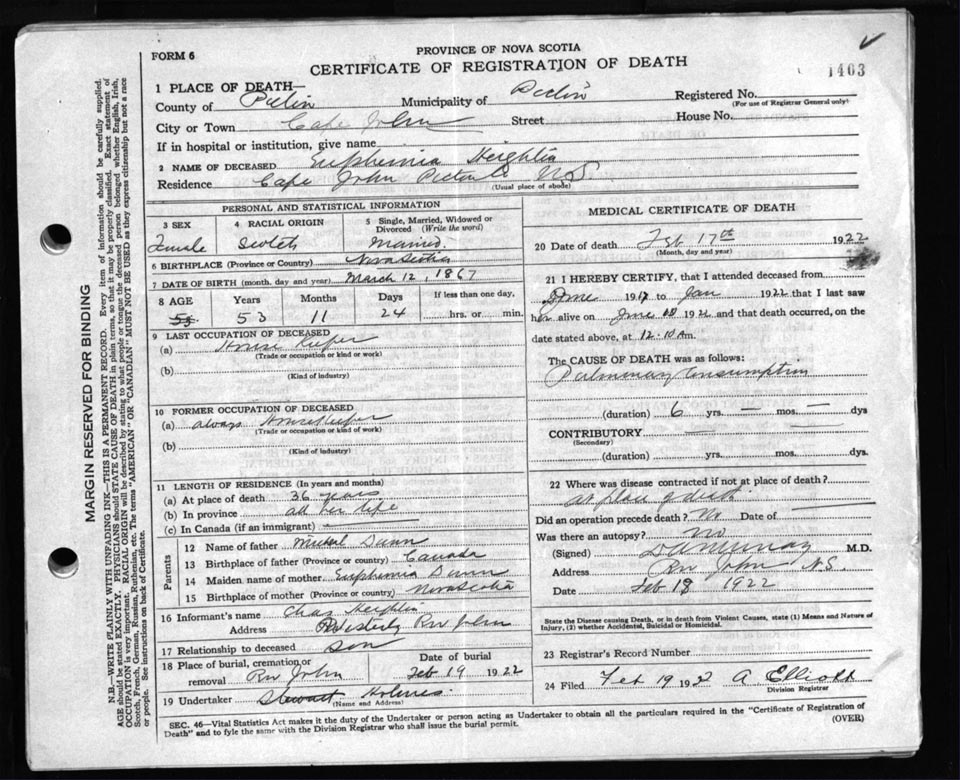 FORM 6
PROVINCE OF NOVA SCOTIA
CERTIFICATE OF REGISTRATION OF DEATH
1403
1 PLACE OF DEATH—
County of Pictou Municipality of Pictou Registered No.
(For use of Registrar General only)
City or Town Cape John Street House No.
If in hospital or institution, give name
2 NAME OF DECEASED Euphemia Heighton
Residence Cape John Pictou Co N.S.
(Usual place of abode)
PERSONAL AND STATISTICAL INFORMATION
3 SEX 4 RACIAL ORIGIN 5 Single, Married, Widowed or Divorced (Write the word)
Female Scotch Married.
6 BIRTHPLACE (Province or Country) Nova Scotia
7 DATE OF BIRTH (month, day and year) March 12, 1867
8 AGE Years Months Days If less than one day,
55 53 11 24 hrs. or min.
9 LAST OCCUPATION OF DECEASED
(a) House Keeper
(Trade or occupation or kind or work)
(b)
(Kind of industry)
10 FORMER OCCUPATION OF DECEASED
(a) always House Keeper
(Trade or occupation or kind of work)
(b)
(Kind of industry)
11 LENGTH OF RESIDENCE (In years and months)
(a) At place of death 36 years
(b) In province all her life
(c) In Canada (if an immigrant)
Parents
12 Name of father Michael Dunn
13 Birthplace of father (Province or country) Canada
14 Maiden name of mother Euphemia Dunn
15 Birthplace of mother (Province or country) Nova Scotia
16 Informant's name Chas Heighton
Address River John
17 Relationship to deceased son
18 Place of burial, cremation or removal Riv John Date of burial Feb 19 1922
19 Undertaker Stewart Holmes.
(Name and Address)
MEDICAL CERTIFICATE OF DEATH
20 Date of death Feb 17th 1922
(Month, day and year)
21 I HEREBY CERTIFY, that I attended deceased from
June 1917 to Jan 1922 that I last saw
her alive on 1922 and that death occurred, on the
date stated above, at 12.10 Am.
The CAUSE OF DEATH was as follows:
Pulmonary Consumption
(duration) 6 yrs. — mos. — dys
CONTRIBUTORY
(Secondary)
(duration) yrs. mos. dys.
22 Where was disease contracted if not at place of death?
at place of death.
Did an operation precede death? No Date of
Was there an autopsy? No
(Signed) D A Murray M.D.
Address Riv John N.S.
Date Feb 18 1922
State the Disease causing Death, or in death from Violent Causes, state (1) Means and Nature of
Injury, (2) whether Accidental, Suicidal or Homicidal.
23 Registrar's Record Number
24 Filed Feb 19 1922 A Elliott
Division Registrar
SEC. 46—Vital Statistics Act makes it the duty of the Undertaker or person acting as Undertaker to obtain all the particulars required in the "Certificate of Registration of
Death" and to fyle the same with the Division Registrar who shall issue the burial permit.
(OVER)
MARGIN RESERVED FOR BINDING
N.B.—WRITE PLAINLY WITH UNFADING INK—THIS IS A PERMANENT RECORD. Every item of information should be carefully supplied.
AGE should be stated EXACTLY. PHYSICIANS should STATE CAUSE OF DEATH in plain terms, so that it may be properly classified. Exact statement of
OCCUPATION is very important. RACIAL ORIGIN will be described by stating to what people or tongue the deceased person belonged whether English, Irish,
Scotch, French, German, Russian, Ruthenian, etc. The terms "AMERICAN" OR "CANADIAN" MUST NOT BE USED as they express citizenship but not a race
or people. See instructions on back of Certificate.